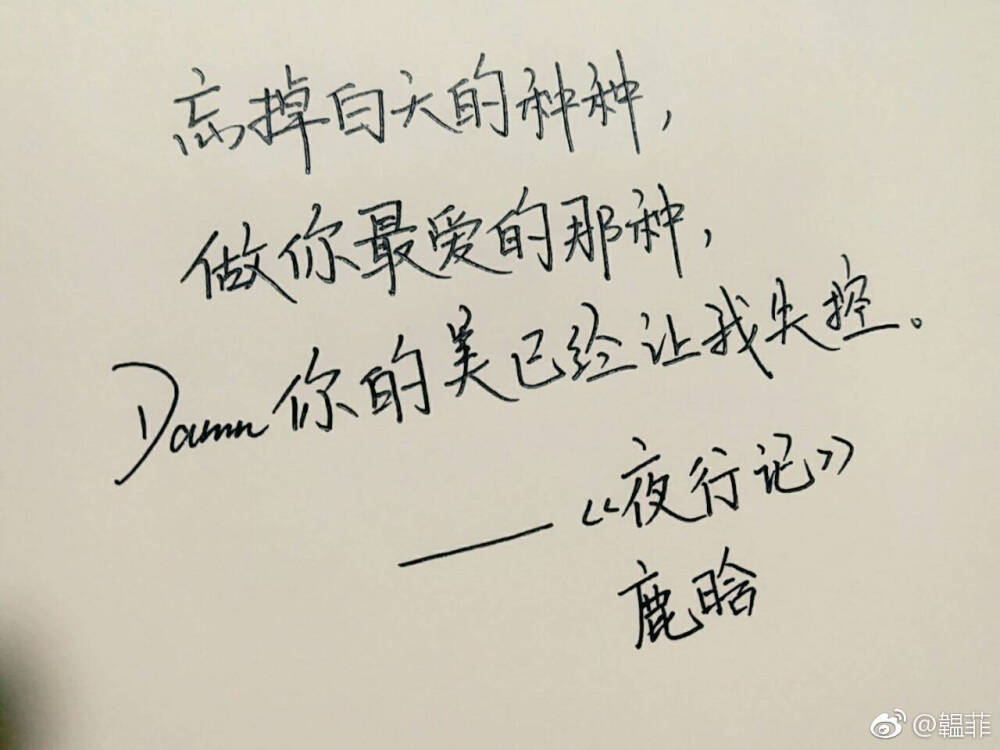 忘掉白天的种种，
做你最爱的那种，
Damn你的美已经让我失控。
——《夜行记》
鹿晗
@韞菲